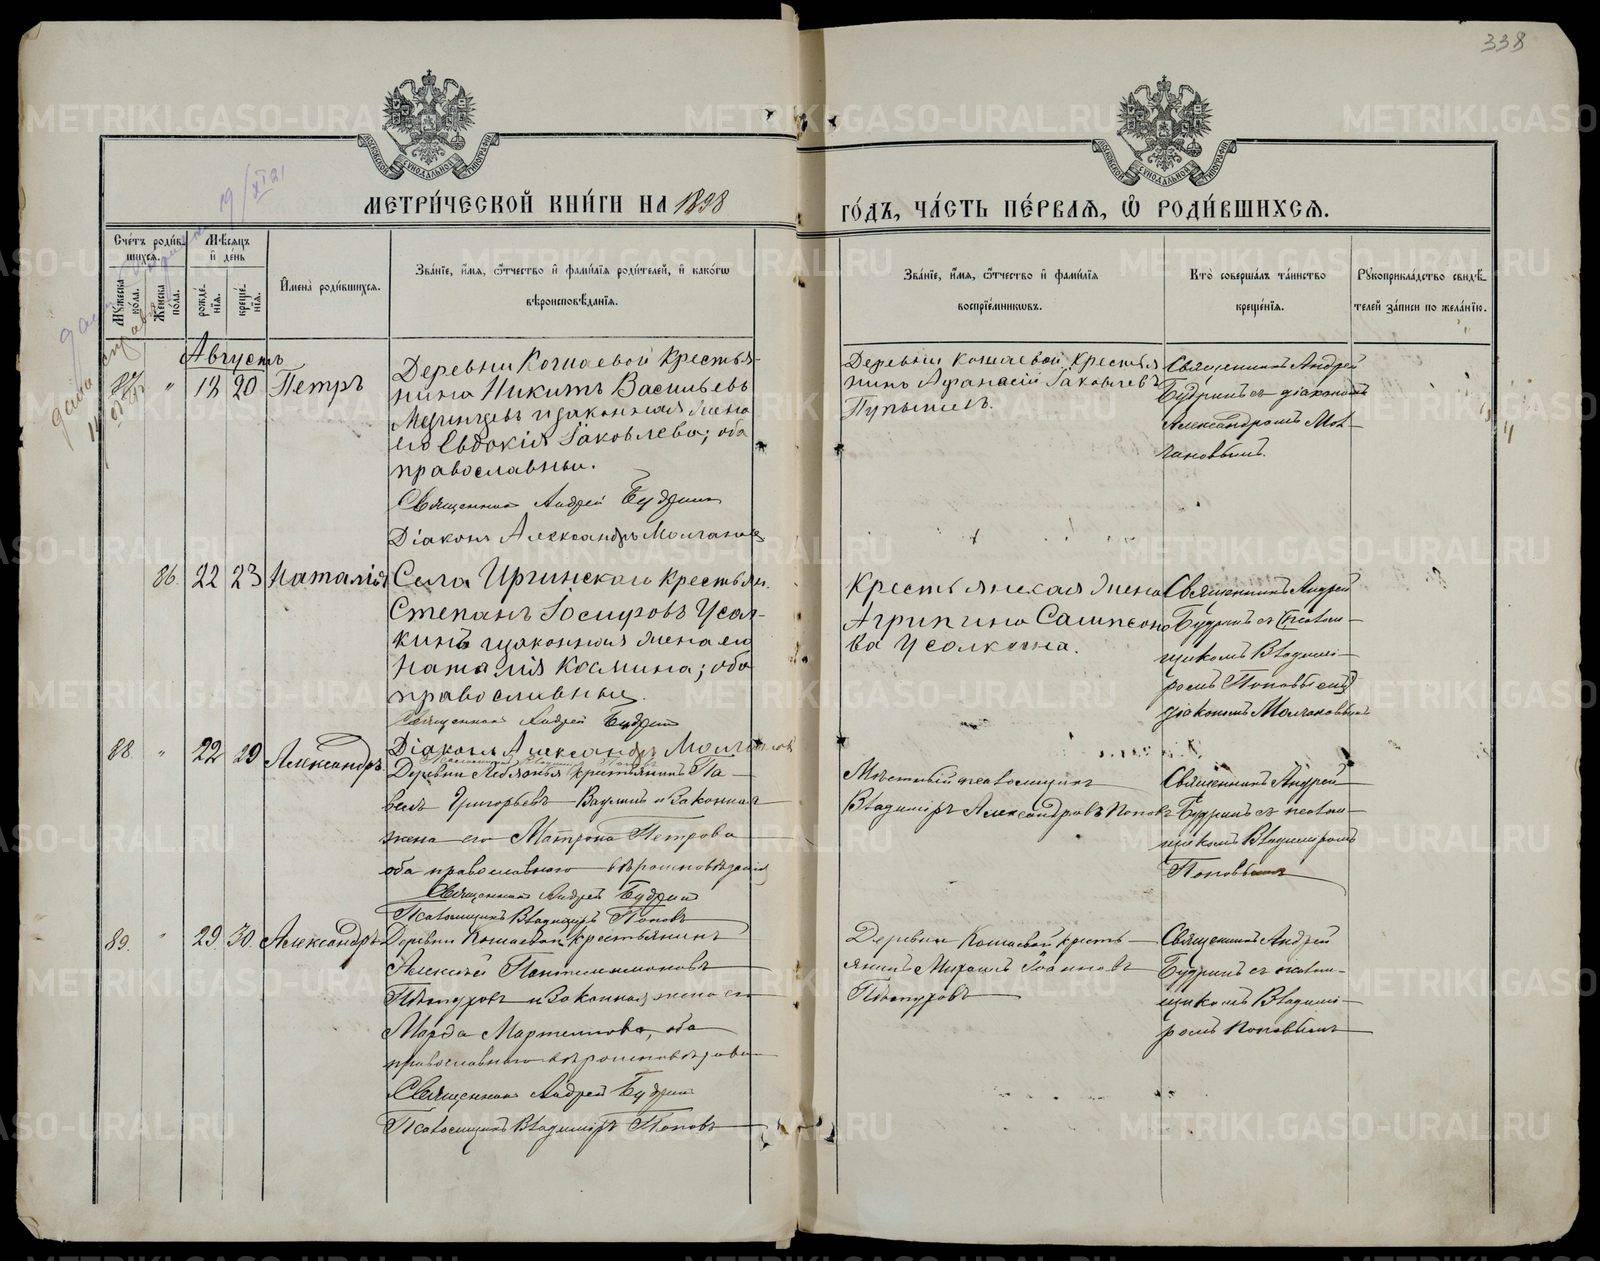 338
МЕТРИ́ЧЕСКОЙ КНИ́ГИ НА 1898
ГО́ДЪ, ЧА́СТЬ ПЕ́РВАЯ, Ѽ РОДИ́ВШИХСЯ.
Сче́тъ роди́в-
шихся.
Мꙋ́жеска
по́ла.
Же́нска
по́ла.
Мѣ́сяцъ
и҆ де́нь
рожде́-
нїя.
креще́-
нїя.
И҆мена̀ роди́вшихся.
Зва́нїе, и҆́мя, ѻ҆́тчество и҆ фами́лїя роди́телей, и҆ како́гѡ
вѣроисповѣ́данїя.
Зва́нїе, и҆́мя, ѻ҆́тчество и҆ фами́лїя
воспрїе́мниковъ.
Кто̀ соверша́лъ та́инство
креще́нїя.
Рꙋкоприкла́дство свидѣ́-
телей за́писи по жела́нїю.
Августъ
87 " 12 20 Петръ
Деревни Кошаевой крестья-
нинъ Никитъ Васильевъ
и законная жена
его Евдокія Іаковлева; оба
православные.
Священникъ Андрей Будринъ
Діаконъ Александръ Молчановъ
Деревни Кошаевой крестья
нинъ Афанасій Іаковлевъ
Пупышевъ.
Священникъ Андрей
Будринъ съ діакономъ
Александромъ Мол-
чановымъ.
86. 22 23 Наталія
Села Иргинскаго крестьян.
Степанъ Усол-
кинъ и законная жена его
Наталія Космина; оба
православные.
Священникъ Андрей Будринъ
Діаконъ Александръ Молчановъ
Псаломщикъ Владиміръ Поповъ
Крестьянская жена
Агрипина Сампсоно
ва Усолкина.
Священникъ Андрей
Будринъ съ псалом-
щикомъ Владимі-
ромъ Поповымъ
діакономъ Молчановымъ
88 " 22 29 Александръ
Деревни крестьянинъ Па-
велъ Григорьевъ и законная
жена его Матрона Петрова
оба православнаго вѣроисповѣданія
Священникъ Андрей Будринъ
Псаломщикъ Владиміръ Поповъ
Мѣстный псаломщикъ
Владиміръ Александровъ Поповъ
Священникъ Андрей
Будринъ съ псалом-
щикомъ Владиміромъ
Поповымъ
89. " 29. 30. Александръ
Деревни Кошаевой крестьянинъ
Алексѣй Пантелеимоновъ
и законная жена его
Марфа Мартемнова, оба
православнаго вѣроисповѣданія
Священникъ Андрей Будринъ
Псаломщикъ Владиміръ Поповъ
Деревни Кошаевой кресть-
янинъ Іоанновъ
Священникъ Андрей
Будринъ съ псалом-
щикомъ Владимі-
ромъ Поповымъ
METRIKI.GASO-URAL.RU